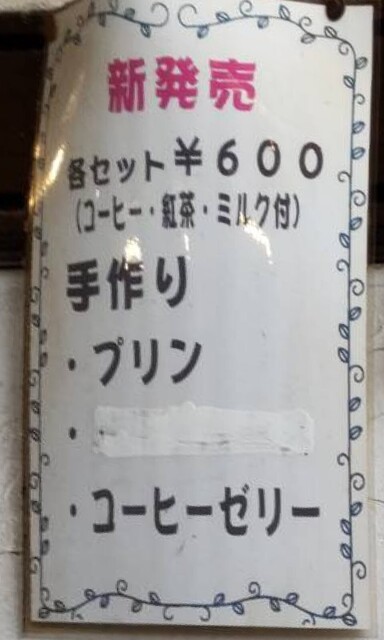 新発売
各セット￥６００
(コーヒー・紅茶・ミルク付)
手作り
・プリン
・
・コーヒーゼリー